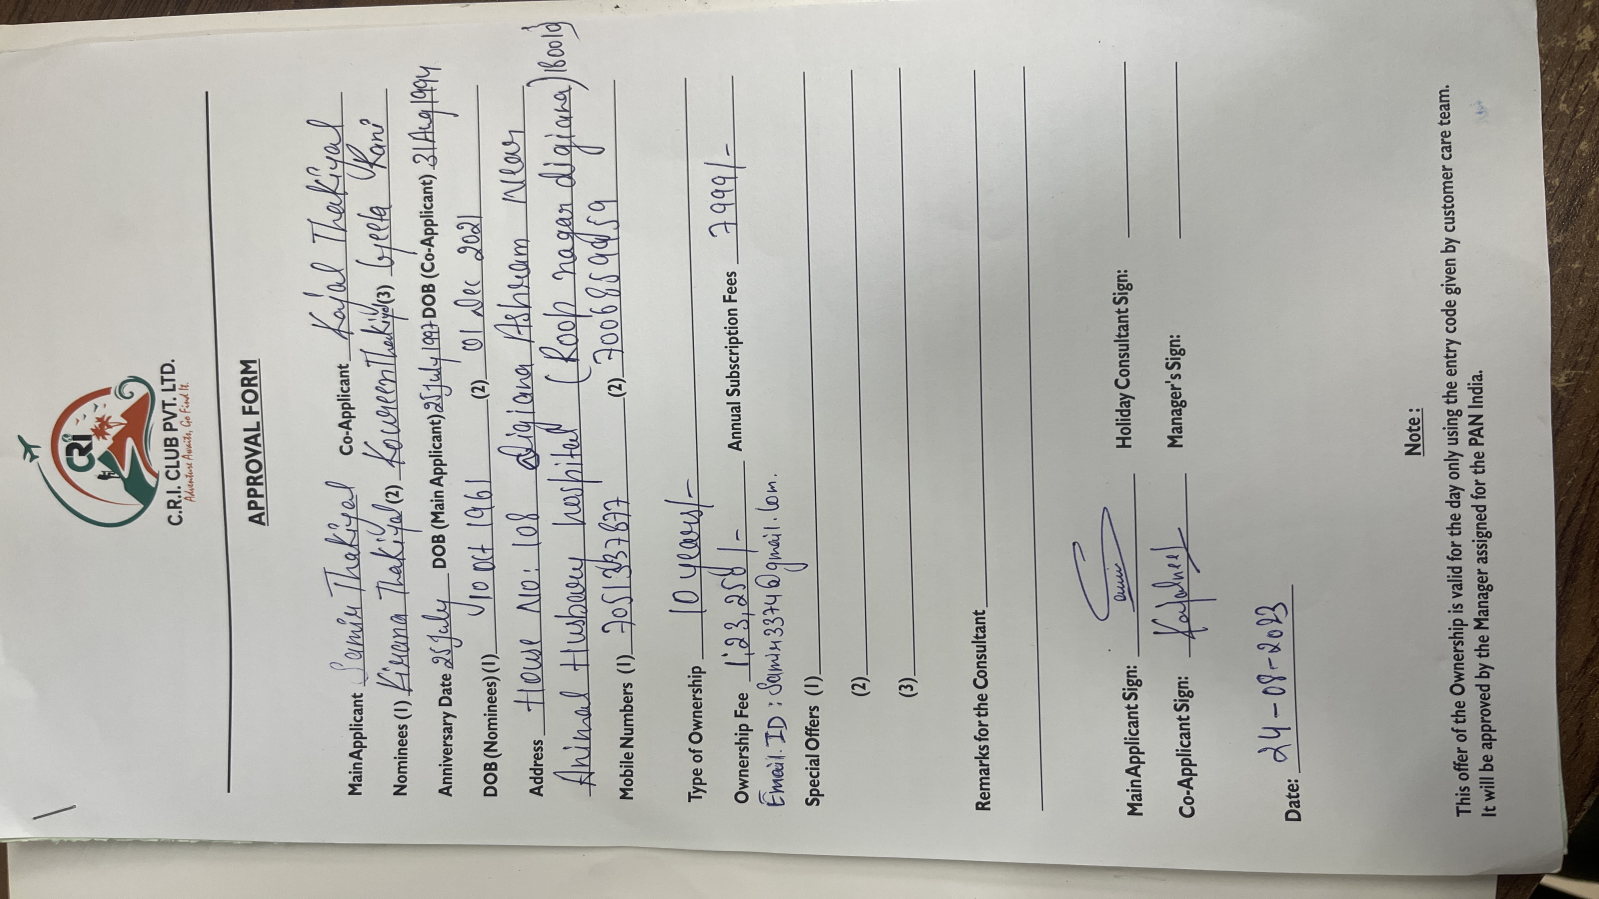 CRI
C.R.I. CLUB PVT. LTD.
Adventure Awaits, Go Find It.
APPROVAL FORM
Main Applicant Samir Thakiyal Co-Applicant Kajal Thakiyal
Nominees (1) Kirana Thakiyal (2) Kowreen Thakiyal (3) Geeta Rani
Anniversary Date 25 July DOB (Main Applicant) 25 July 1997 DOB (Co-Applicant) 31 Aug 1994
DOB (Nominees) (1) 10 Oct 1961 (2) 01 Dec 2021
Address House No: 108 Digiana Ashram Near
Animal Husbary hospital (Roop nagar digiana) 180010
Mobile Numbers (1) 7051337877 (2) 7006859959
Type of Ownership 10 years/-
Ownership Fee 1,23,258/- Annual Subscription Fees 7999/-
Email. ID : Samir33740@gmail.com.
Special Offers (1)
(2)
(3)
Remarks for the Consultant
Main Applicant Sign: Holiday Consultant Sign:
Co-Applicant Sign: Manager's Sign:
Date: 24-08-2023
Note :
This offer of the Ownership is valid for the day only using the entry code given by customer care team.
It will be approved by the Manager assigned for the PAN India.